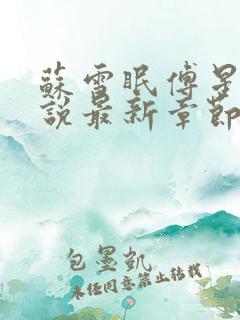 蘇雪眠傅星
說最新章節
包墨凱
未经同意禁止转载